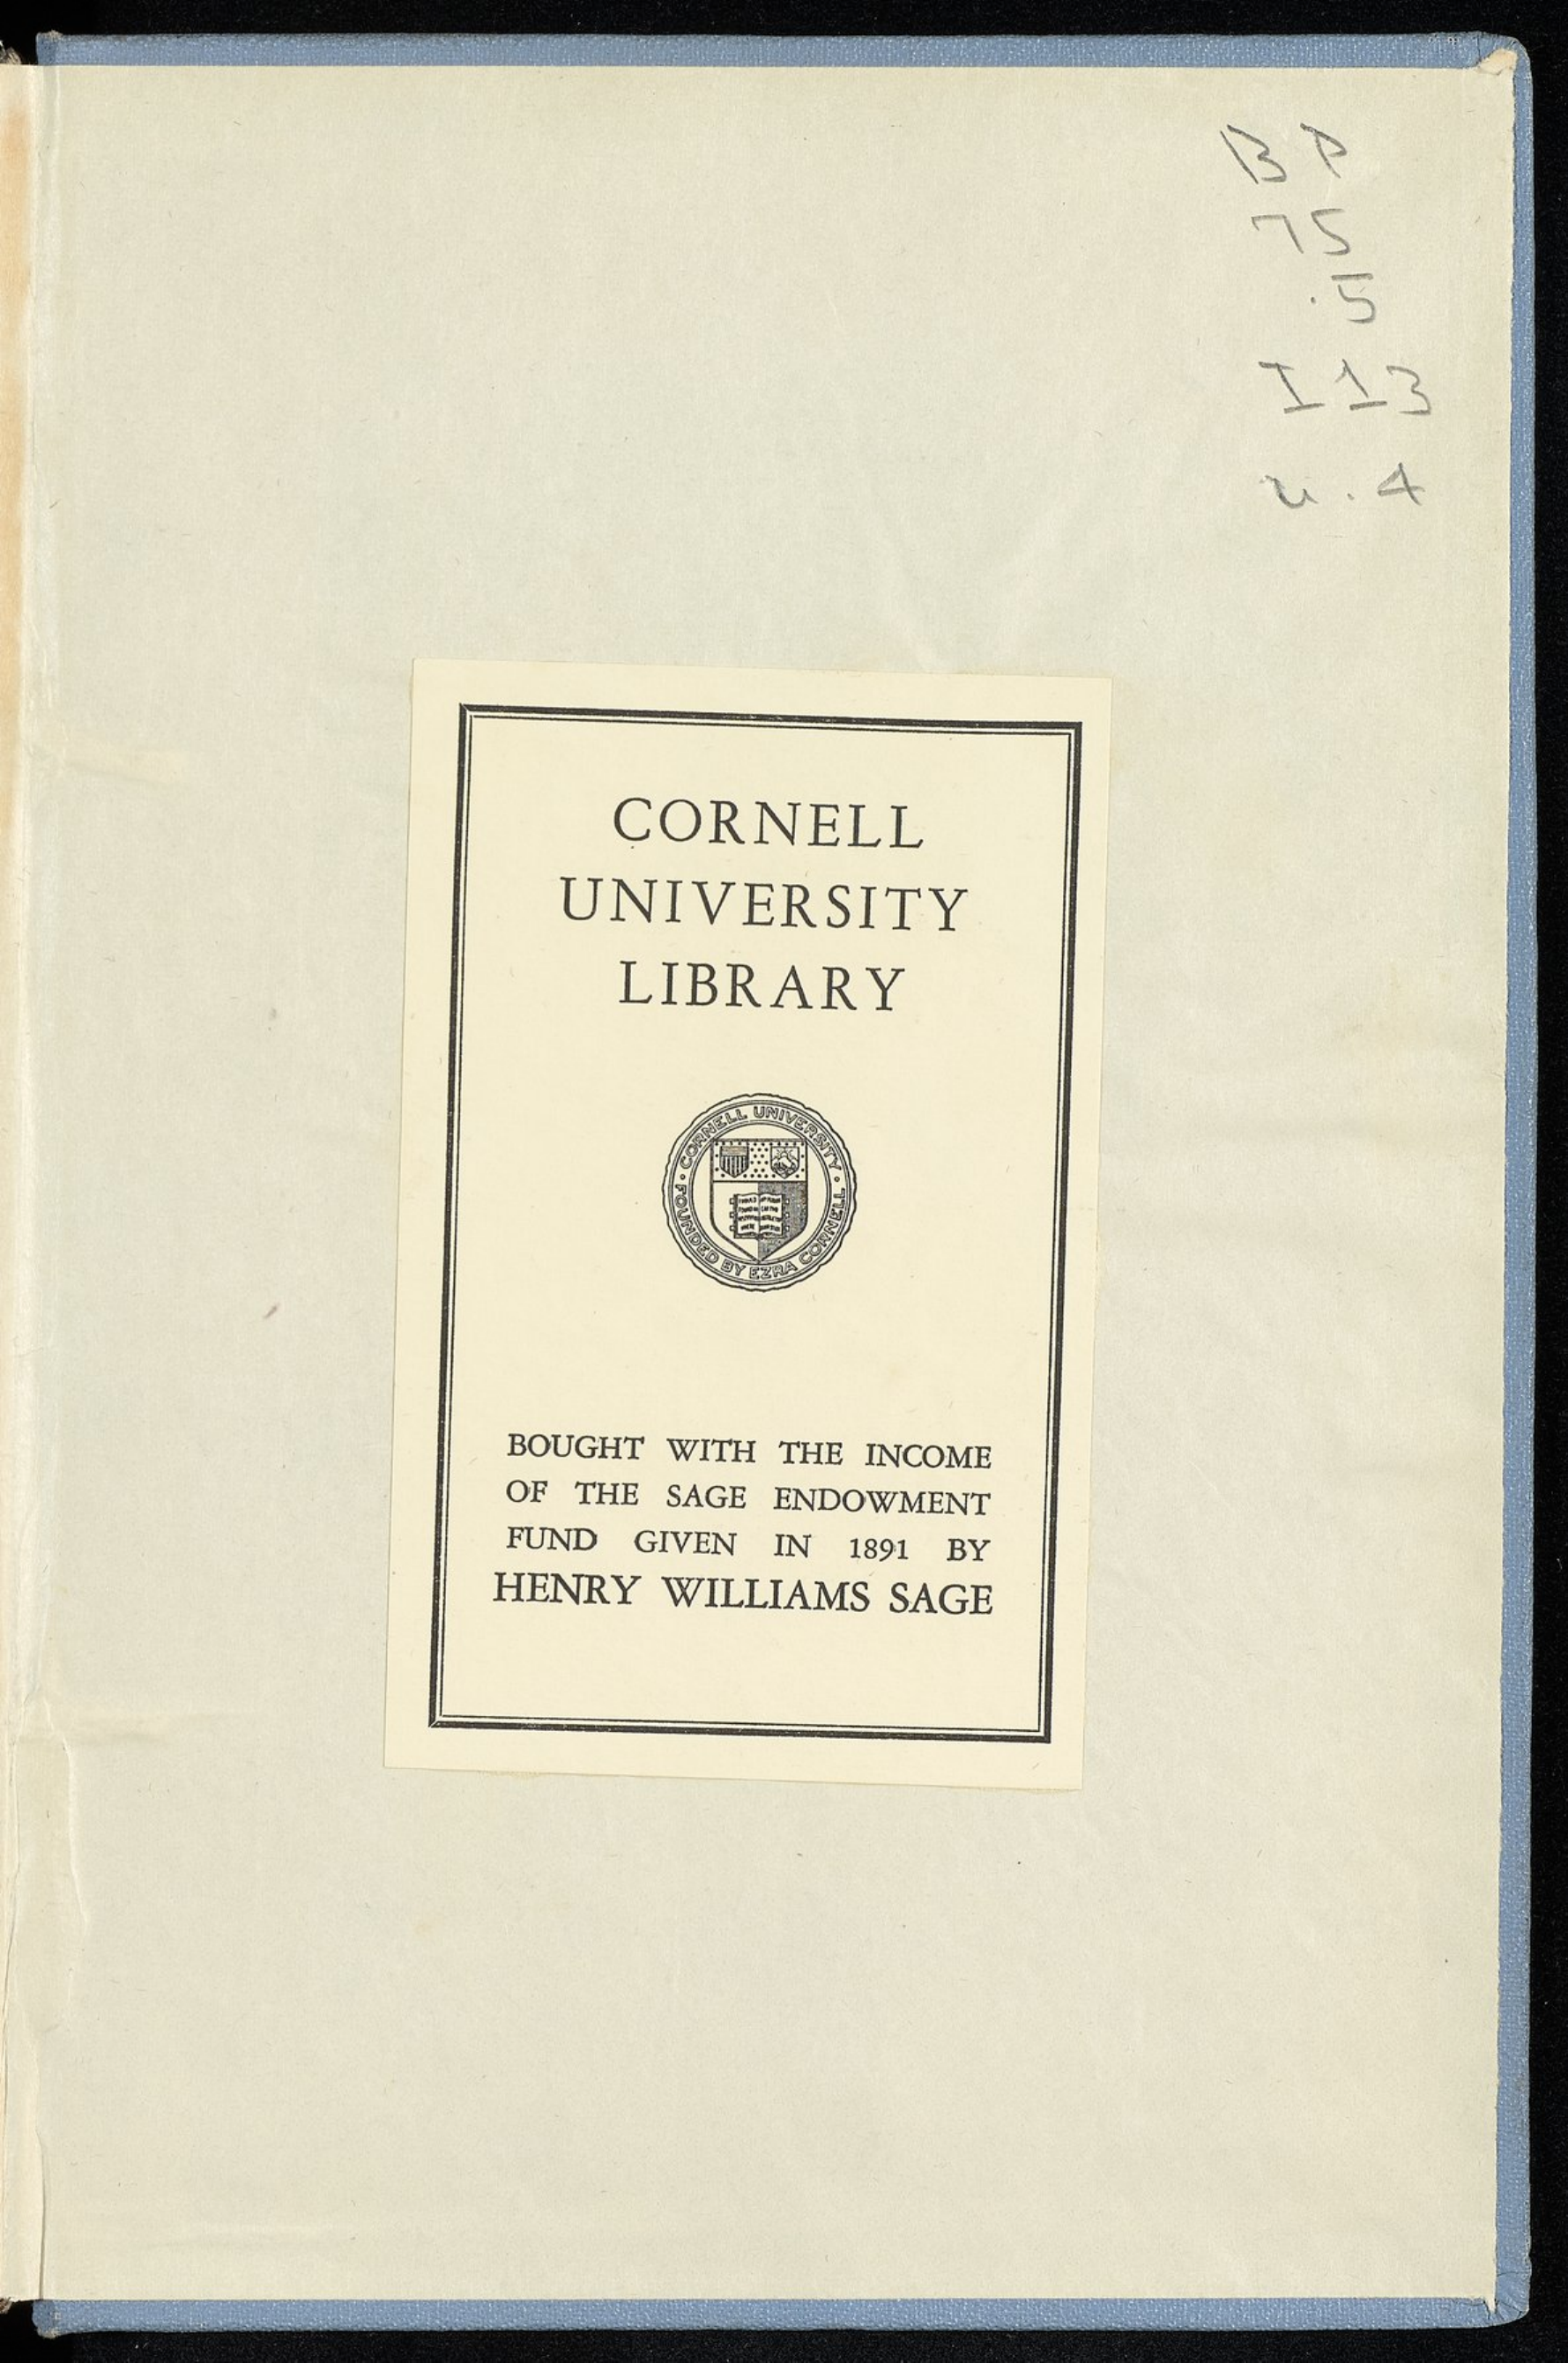 BP
75
.5
I13
v.4
CORNELL
UNIVERSITY
LIBRARY
CORNELL UNIVERSITY
FOUNDED BY EZRA CORNELL
BOUGHT WITH THE INCOME
OF THE SAGE ENDOWMENT
FUND GIVEN IN 1891 BY
HENRY WILLIAMS SAGE